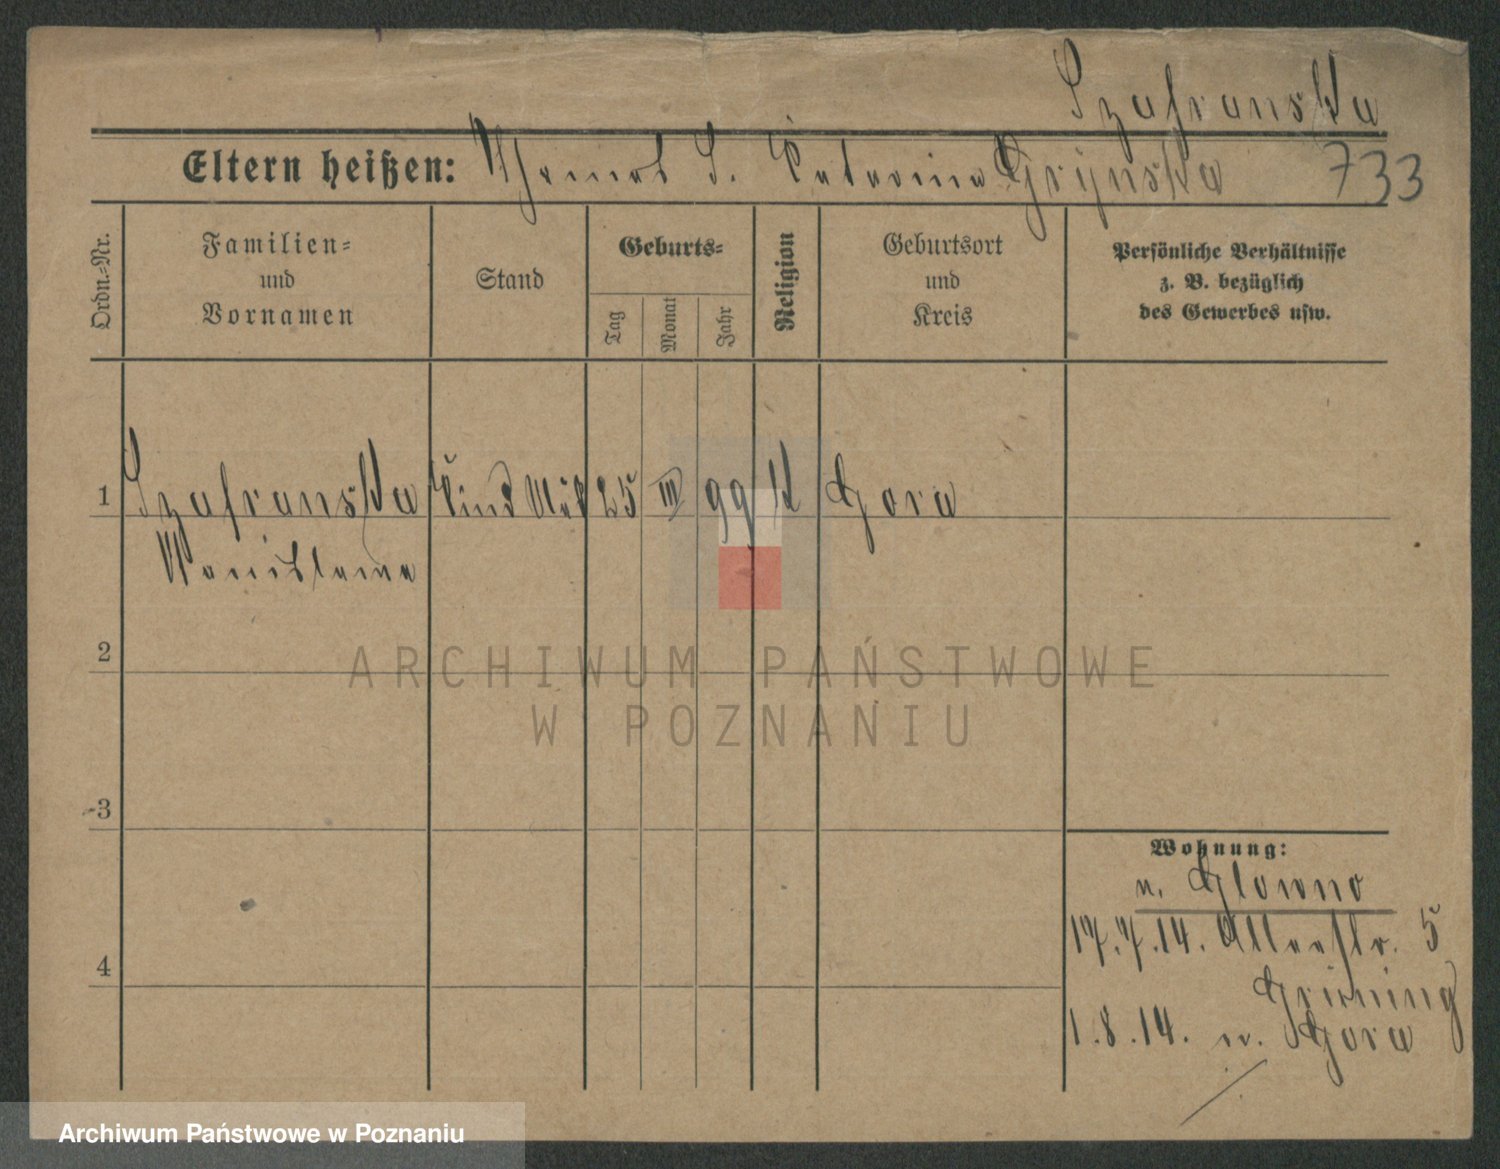 Szafranska
Eltern heißen: Thomas S. Katarina Grynska 733
Ordn.-Nr.
Familien-
und
Vornamen
Stand
Geburts-
Tag
Monat
Jahr
Religion
Geburtsort
und
Kreis
Persönliche Verhältnisse
z. B. bezüglich
des Gewerbes usw.
1 Szafranska Kind 25 III 99 K Gora
2
3
4
Wohnung:
n. Glowno
17.7.14. Alleestr. 5
Gruning
1.8.14. n. Gora
ARCHIWUM PAŃSTWOWE
W POZNANIU
Archiwum Państwowe w Poznaniu